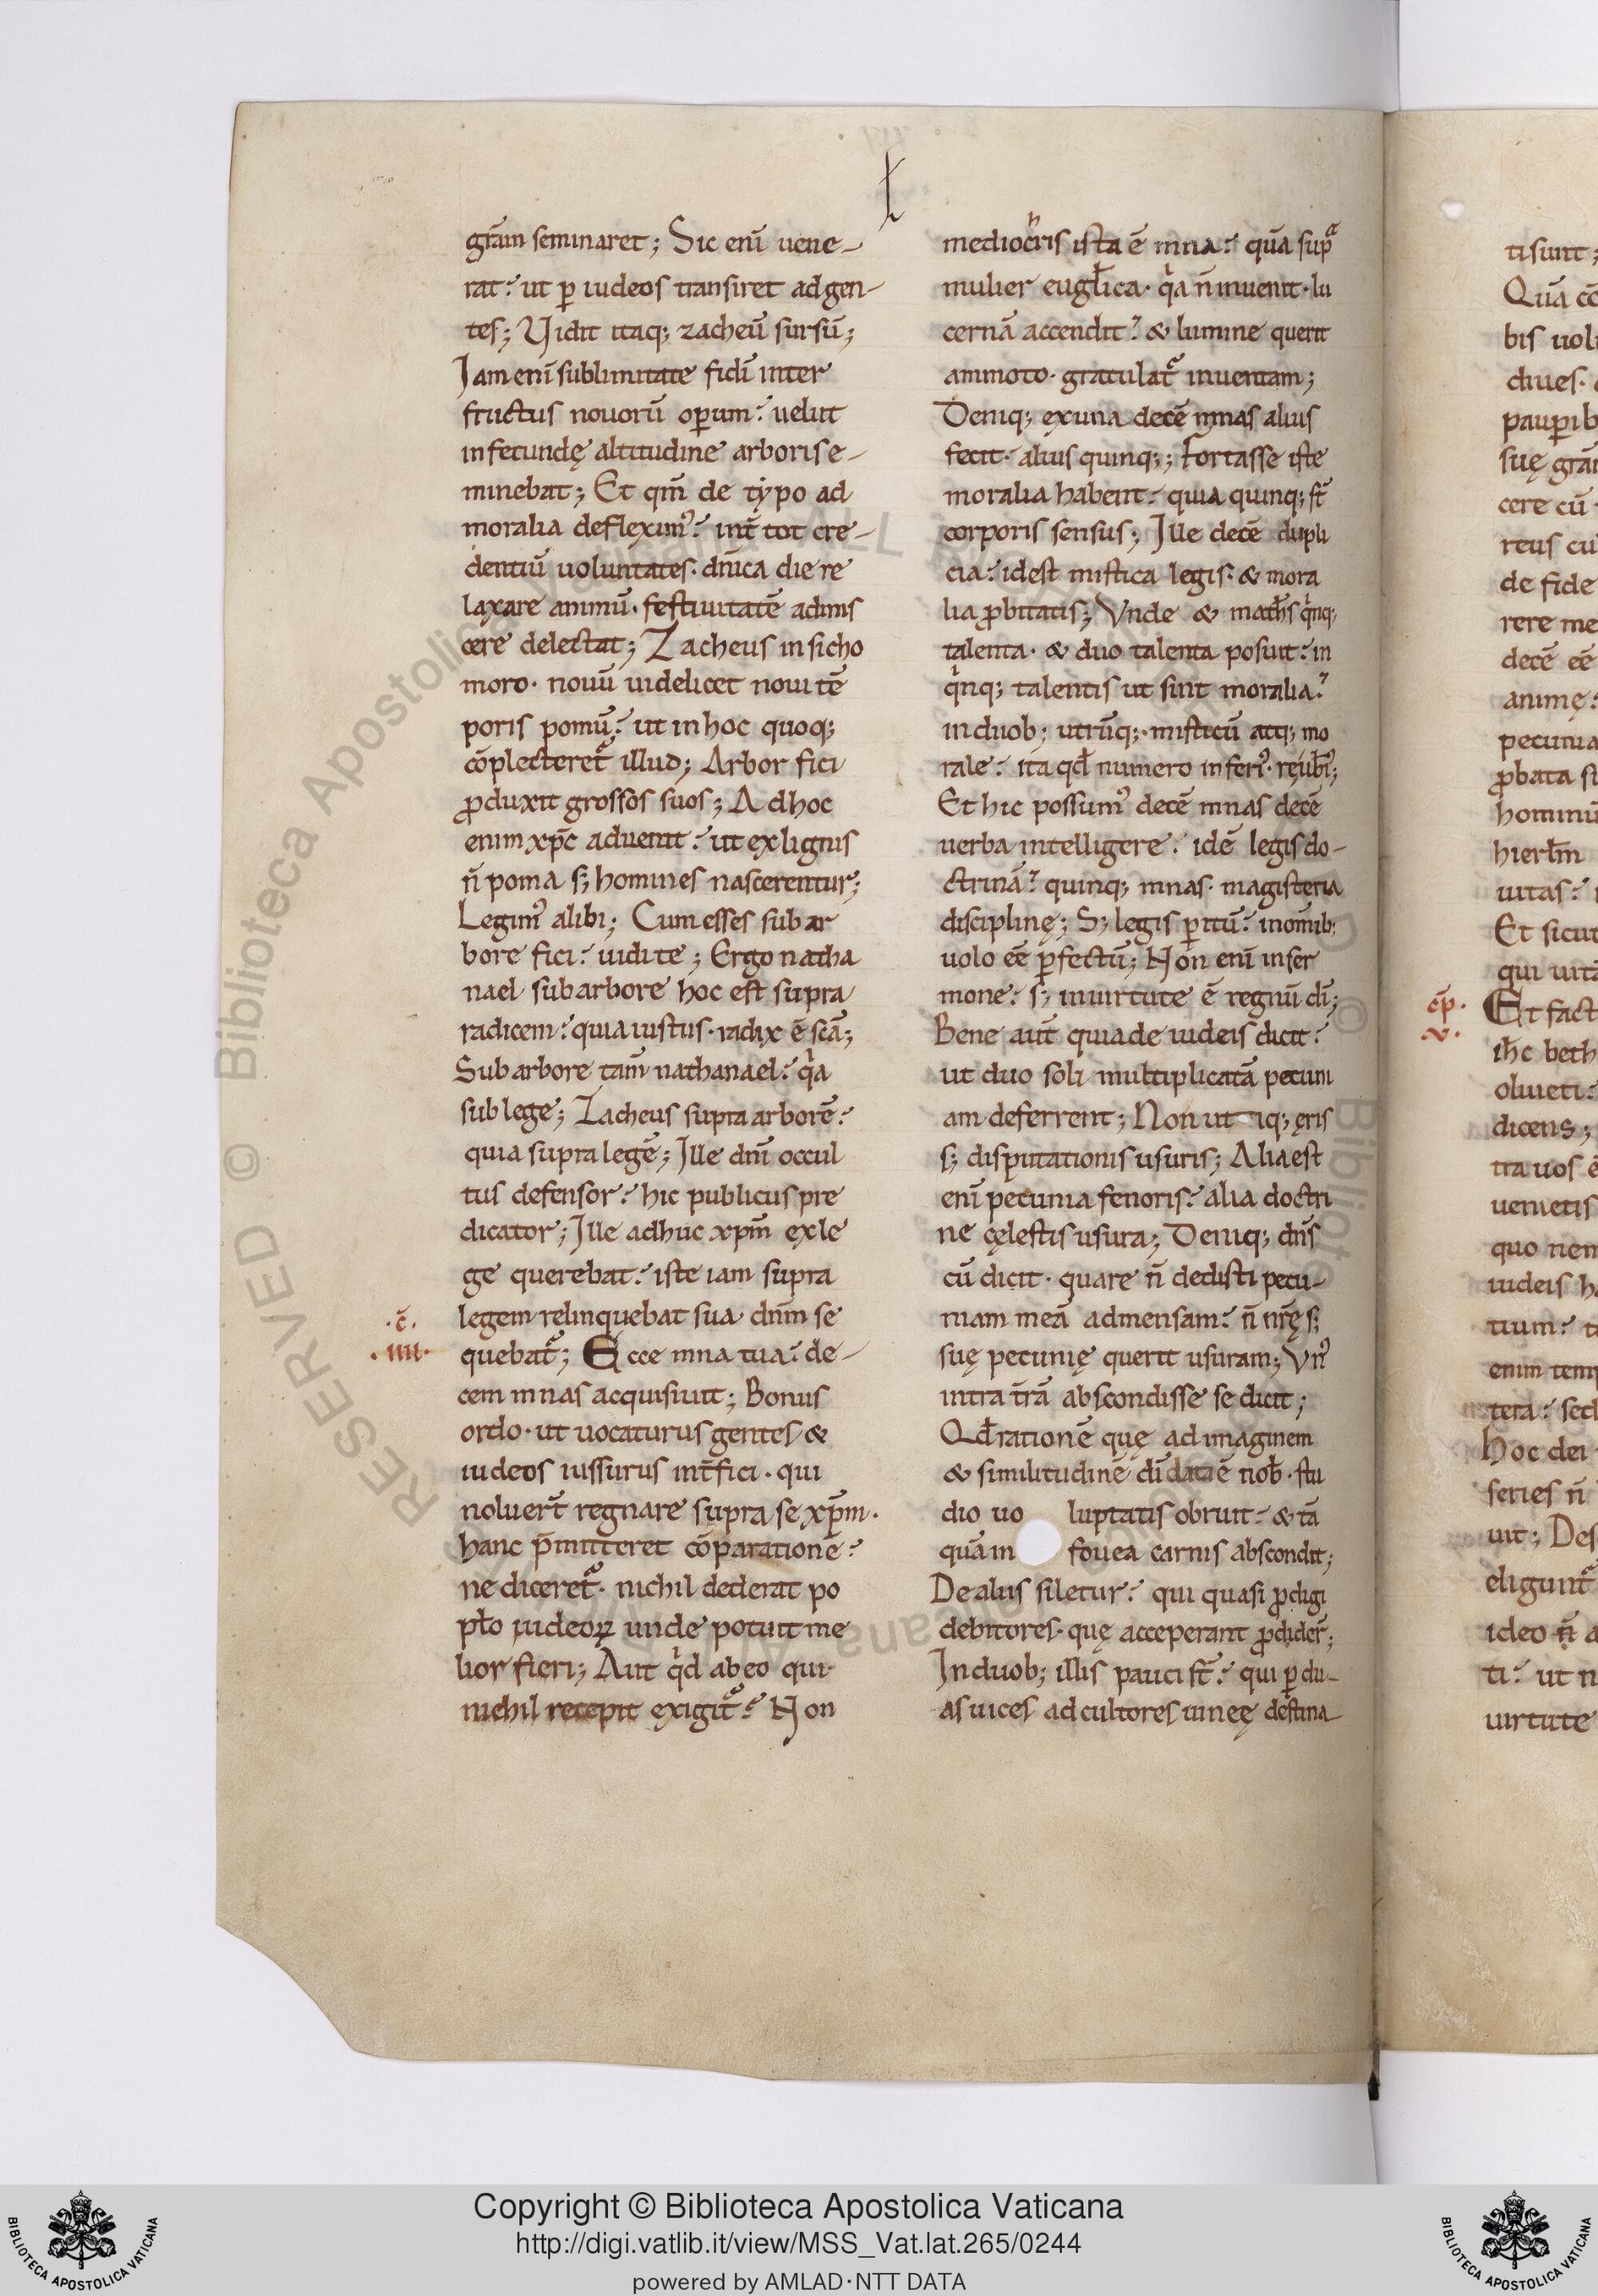 grãm seminaret; Sic enĩ uene-
rat? ut ꝑ iudeos transiret ad gen-
tes; Vidit itaq; zacheũ sursũ;
Iam enĩ sublimitate fidĩ inter
fructus nouorũ oꝑum? uelut
in fecundę altitudine arboris e-
minebat; Et qm̃ de typo ad
moralia defleximꝰ? int̃ tot cre-
dentiũ uoluntates· dñica die re
laxare animũ· festiuitatẽ admis
cere delectat; Zacheus in sicho
moro· nouũ uidelicet noui tẽ
poris pomũ? ut in hoc quoq;
cõplecteret᷑ illud; Arbor fici
ꝓduxit grossos suos; Ad hoc
enim xp̃c aduenit? ut ex lignis
ñ poma s; homines nascerentur;
Legimꝰ alibi; Cum esses sub ar
bore fici? uidi te; Ergo natha
nael sub arbore hoc est supra
radicem? quia iustus· radix ẽ scã;
Sub arbore tam̃ nathanael? qͥa
sub lege; Zacheus supra arborẽ?
quia supra legẽ; Ille dnĩ occul
tus defensor? hic publicus pre
dicator; Ille adhuc xpm̃ ex le
ge querebat? iste iam supra
legem relinquebat sua· dnm̃ se
·c̃·
·IIII·
quebat᷑; Ecce mna tua? de-
cem mnas acquisiuit; Bonus
ordo· ut uocaturus gentes &
iudeos iussurus int̃fici· qui
noluer̃t regnare supra se xp̃m·
hanc p̃mitteret cõparationẽ?
ne diceret᷑· nichil dederat po
pl̃o iudeoꝝ unde potuit me
lior fieri; Aut qͥd ab eo qui
nichil recepit exigit᷑? Non
mediocͥris ista ẽ mna? quã supᷓ
mulier eugl̃ica· qͥa ñ inuenit· lu
cernã accendit? & lumine querit
ammoto· gratulat᷑ inuentam;
Deniq; ex una decẽ mnas alius
fecit· alius quinq;; Fortasse iste
moralia habent? quia quinq; st̃
corporis sensus; Ille decẽ dupli
cia? idest mistica legis· & mora
lia ꝓbitatis; Vnde & math̃s qͥnq;
talenta· & duo talenta posuit? in
qͥnq; talentis ut sint moralia?
in duob; utrũq;· misticũ atq; mo
rale? ita qd̃ numero inferiꝰ· re ub̃iꝰ;
Et hic possumꝰ decẽ mnas decẽ
uerba intelligere? idẽ legis do-
ctrinã? quinq; mnas· magisteria
disciplinę; S; legis ꝑitũ? in omĩb;
uolo eẽ ꝑfectũ; Non enĩ in ser
mone? s; in uirtute ẽ regnũ dĩ;
Bene aut̃ quia de iudeis dicit?
ut duo soli multiplicatã pecuni
am deferrent; Non utiq; ęris
s; disputationis usuris; Alia est
enĩ pecunia fenoris? alia doctri
ne cęlestis usura; Deniq; dñs
cũ dicit· quare ñ dedisti pecu-
niam meã ad mensam? ñ nr̃ę s;
suę pecunię querit usuram; Vnꝰ
intra tr̃ã abscondisse se dicit;
Qd̃ rationẽ quę ad imaginem
& similitudinẽ dĩ data ẽ nob̃· stu
dio uo luptatis obruit? & tã
quã in fouea carnis abscondit;
De aliis siletur? qui quasi ꝓdigi
debitores· quę acceperant ꝓdider̃;
In duob; illis pauci st̃? qui ꝑ du-
as uices ad cultores uineę destina
tisunt;
bis uol
diues·
suę grã
cere cũ
reus cu
de fide
rere me
decẽ eẽ
animę?
pecunia
ꝓbata st
hominũ
hierl̃m
uitas?
Et sicut
qui uitã
cp̃·
·v·
Et fact
ih̃c beth
oliueti?
dicens;
tra uos ẽ
uenietis
quo nem
iudeis h
tium?
enim temp
tera? sed
Hoc dei
series ñ
uit; Des
eligunt᷑
ideo ñ a
ti? ut n
uirtute
Copyright © Biblioteca Apostolica Vaticana
http://digi.vatlib.it/view/MSS_Vat.lat.265/0244
powered by AMLAD·NTT DATA
BIBLIOTECA APOSTOLICA VATICANA
BIBLIOTECA APOSTOLICA VATICANA